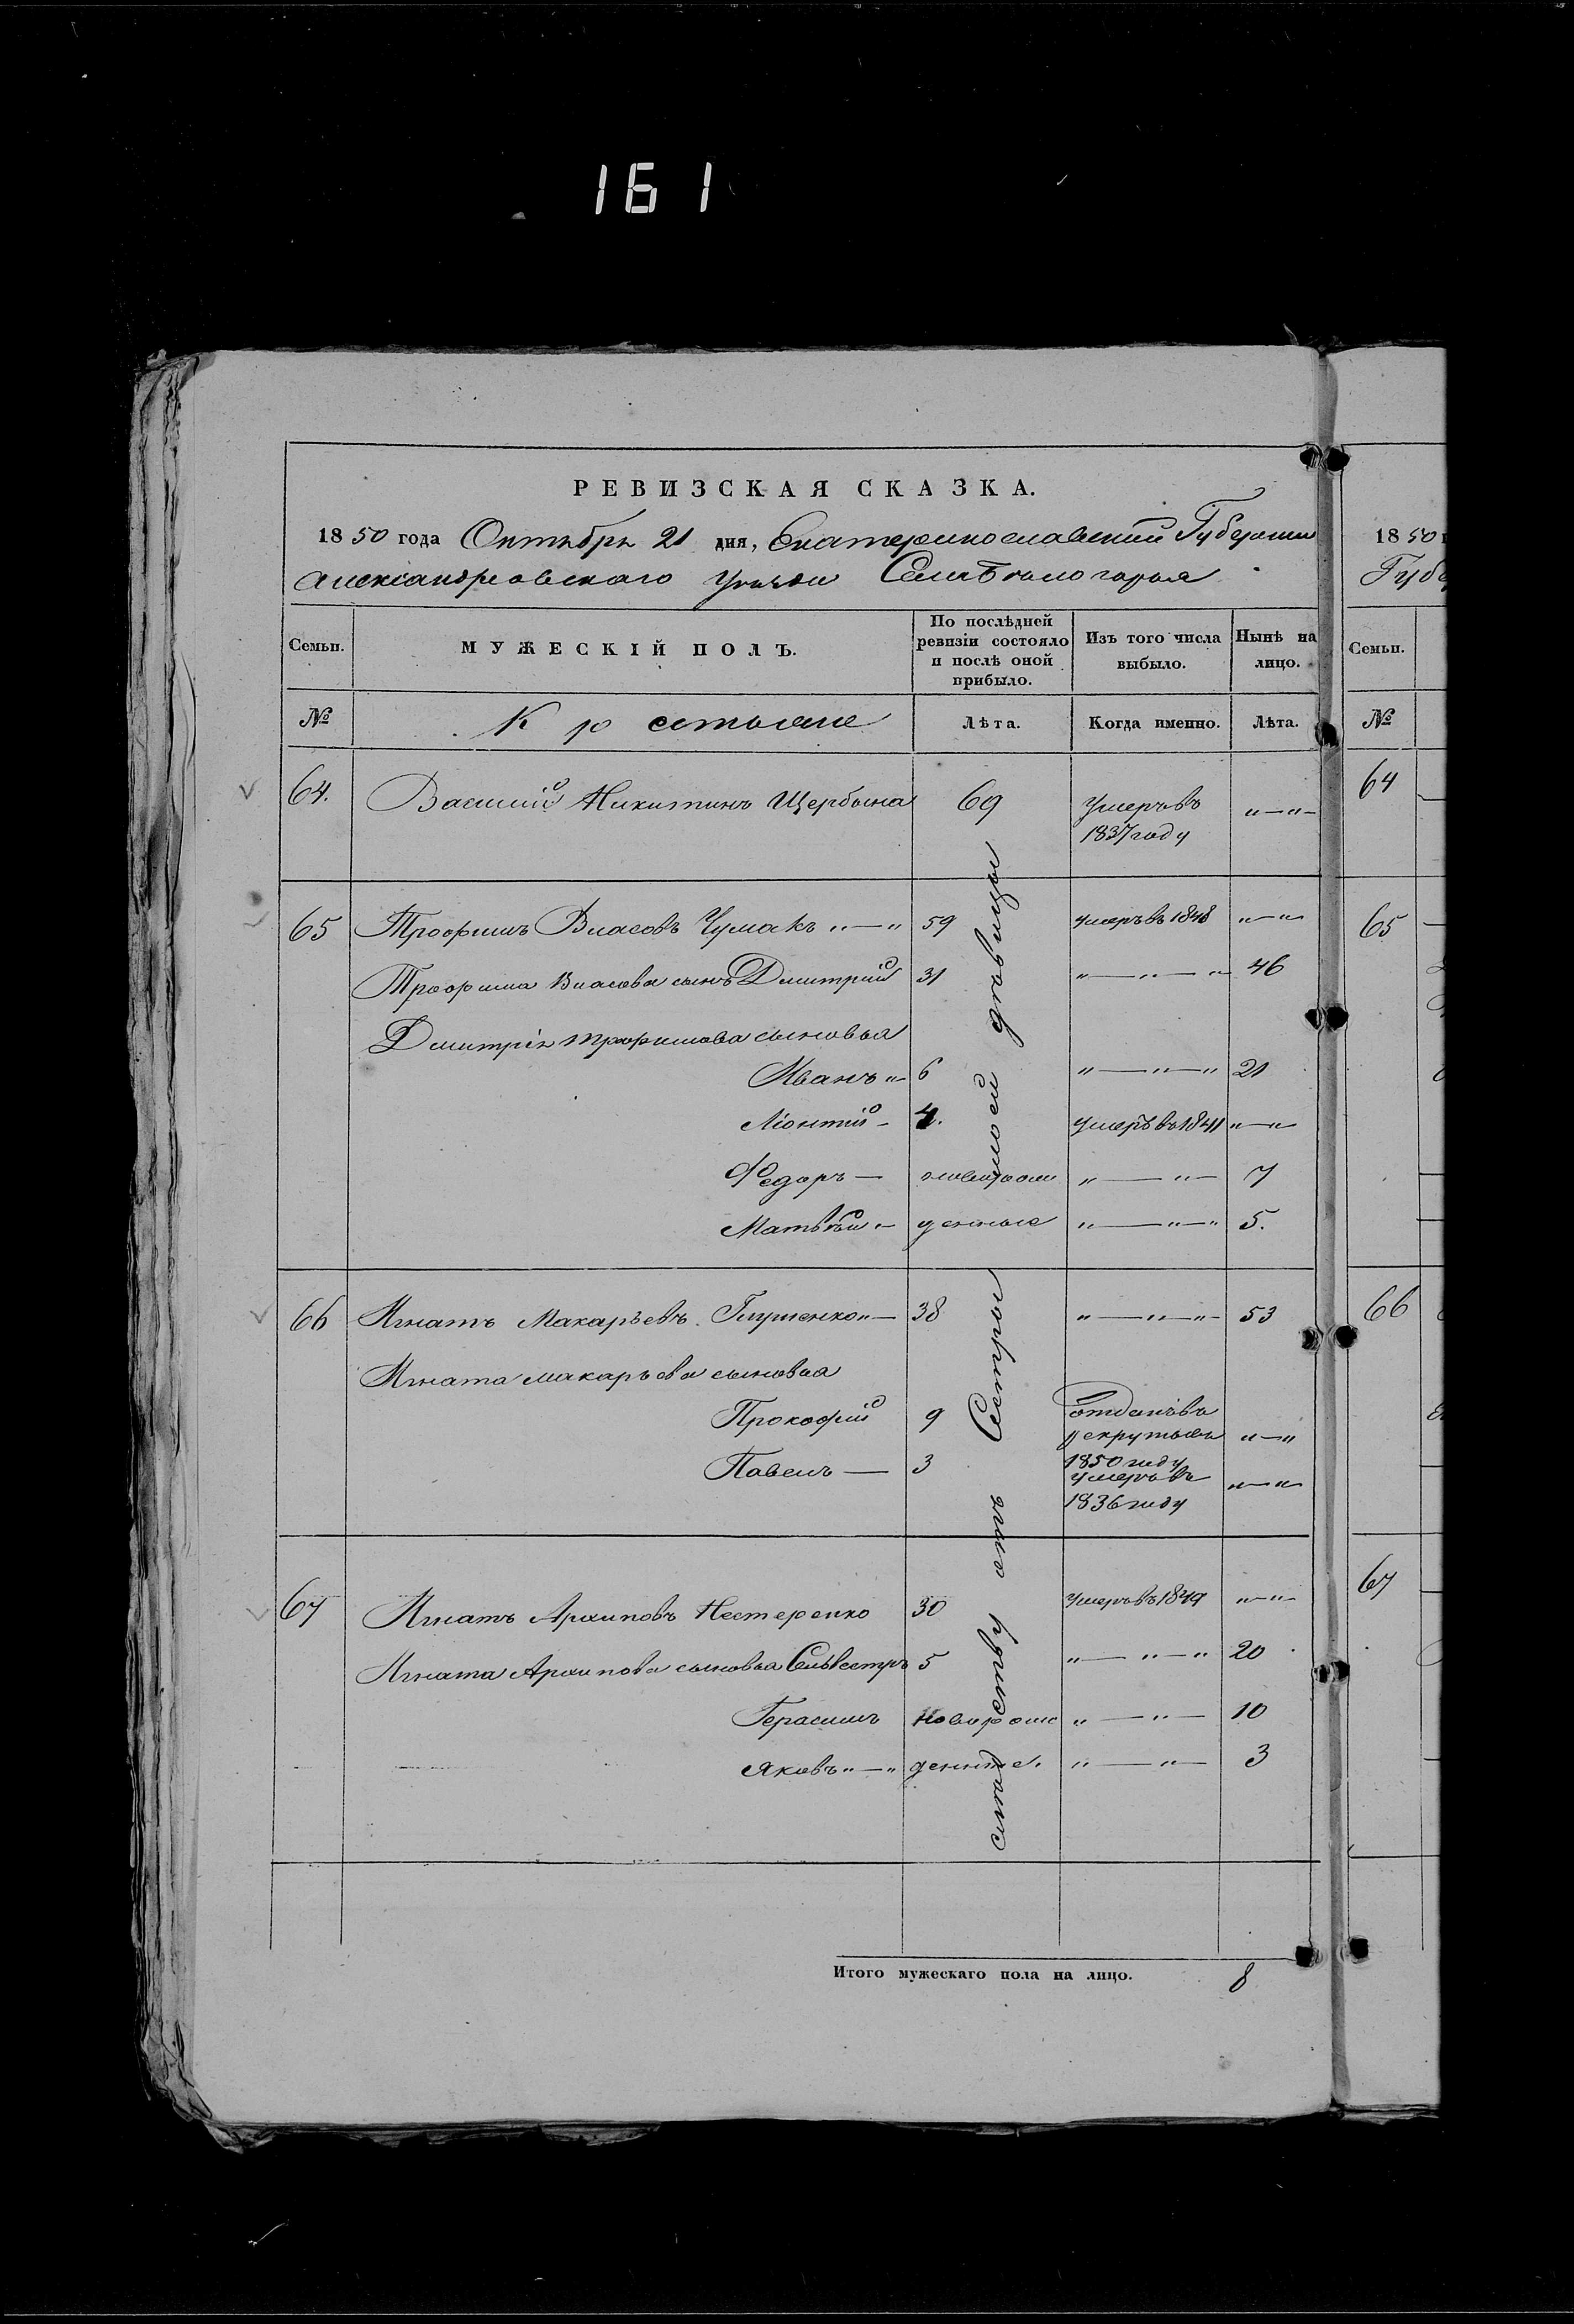 161
РЕВИЗСКАЯ СКАЗКА.
1850 года Октября 21 дня, Екатеринославской Губернии
Александровскаго Уезда
Семьи.
МУЖЕСКІЙ ПОЛЪ.
По послѣдней ревизіи состояло и послѣ оной прибыло.
Изъ того числа выбыло.
Нынѣ на лицо.
№
Крестьяне
Лѣта.
Когда именно.
Лѣта.
64. Василий Никитинъ Щербина 69 Умеръ въ 1837 году „—„—
65 Трофимъ Власовъ Чумакъ „—„ 59 умеръ въ 1848 „—„
Трофима Власова сынъ Дмитрий 31 „—„—„ 46
Дмитрія Трофимова сыновья
Иванъ „— 6 „—„—„ 21
Лионтий — 4. умеръ въ 1841 „—„
Федоръ — новорож „—„— 7
Матвѣй „— денные „—„—„ 5.
66 Игнатъ Макарьевъ Глущенко „— 38 „—„—„— 53
Игната Макарьева сыновья
Прокофий 9 отданъ въ рекруты въ 1850 году „—„
Павелъ — 3 умеръ въ 1836 году „—„—
67 Игнатъ Архиповъ Нестеренко 30 умеръ въ 1849 „—„—
Игната Архипова сыновья Сильвестръ 5 „—„—„ 20
Герасимъ новорож „—„— 10
Яковъ „—„ денные. „—„— 3
Итого мужескаго пола на лицо. 8
1850
Губе
Семьи.
№
64
65
66
67